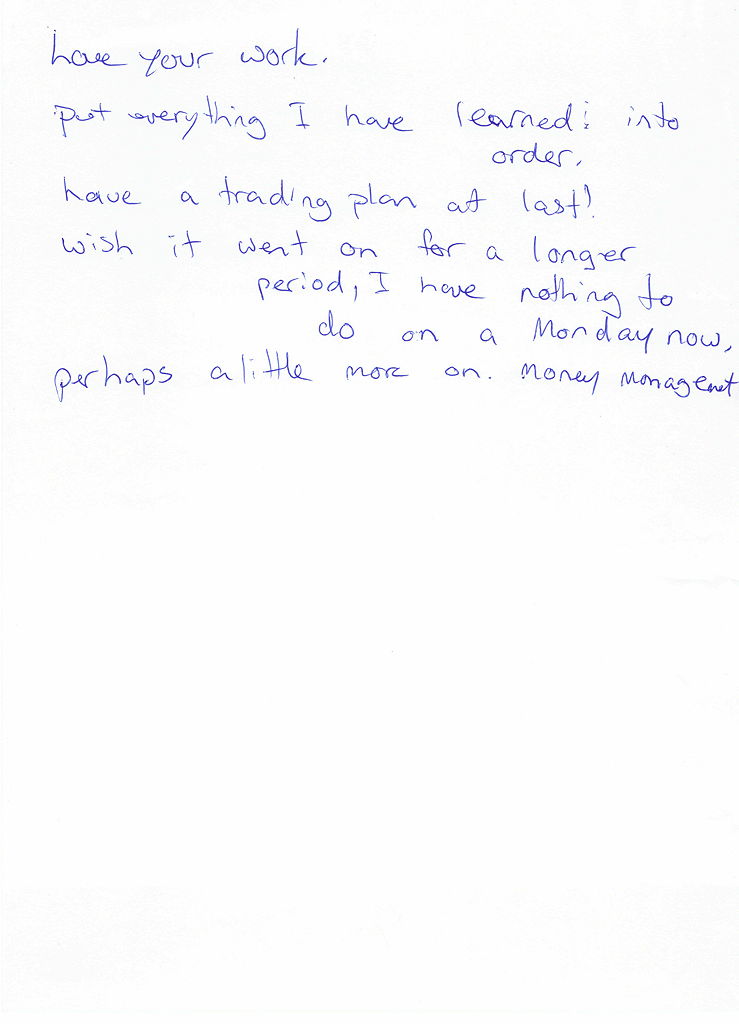 have your work.
put everything I have learned! into
order.
have a trading plan at last!
wish it went on for a longer
period, I have nothing to
do on a Monday now,
perhaps a little more on. money management